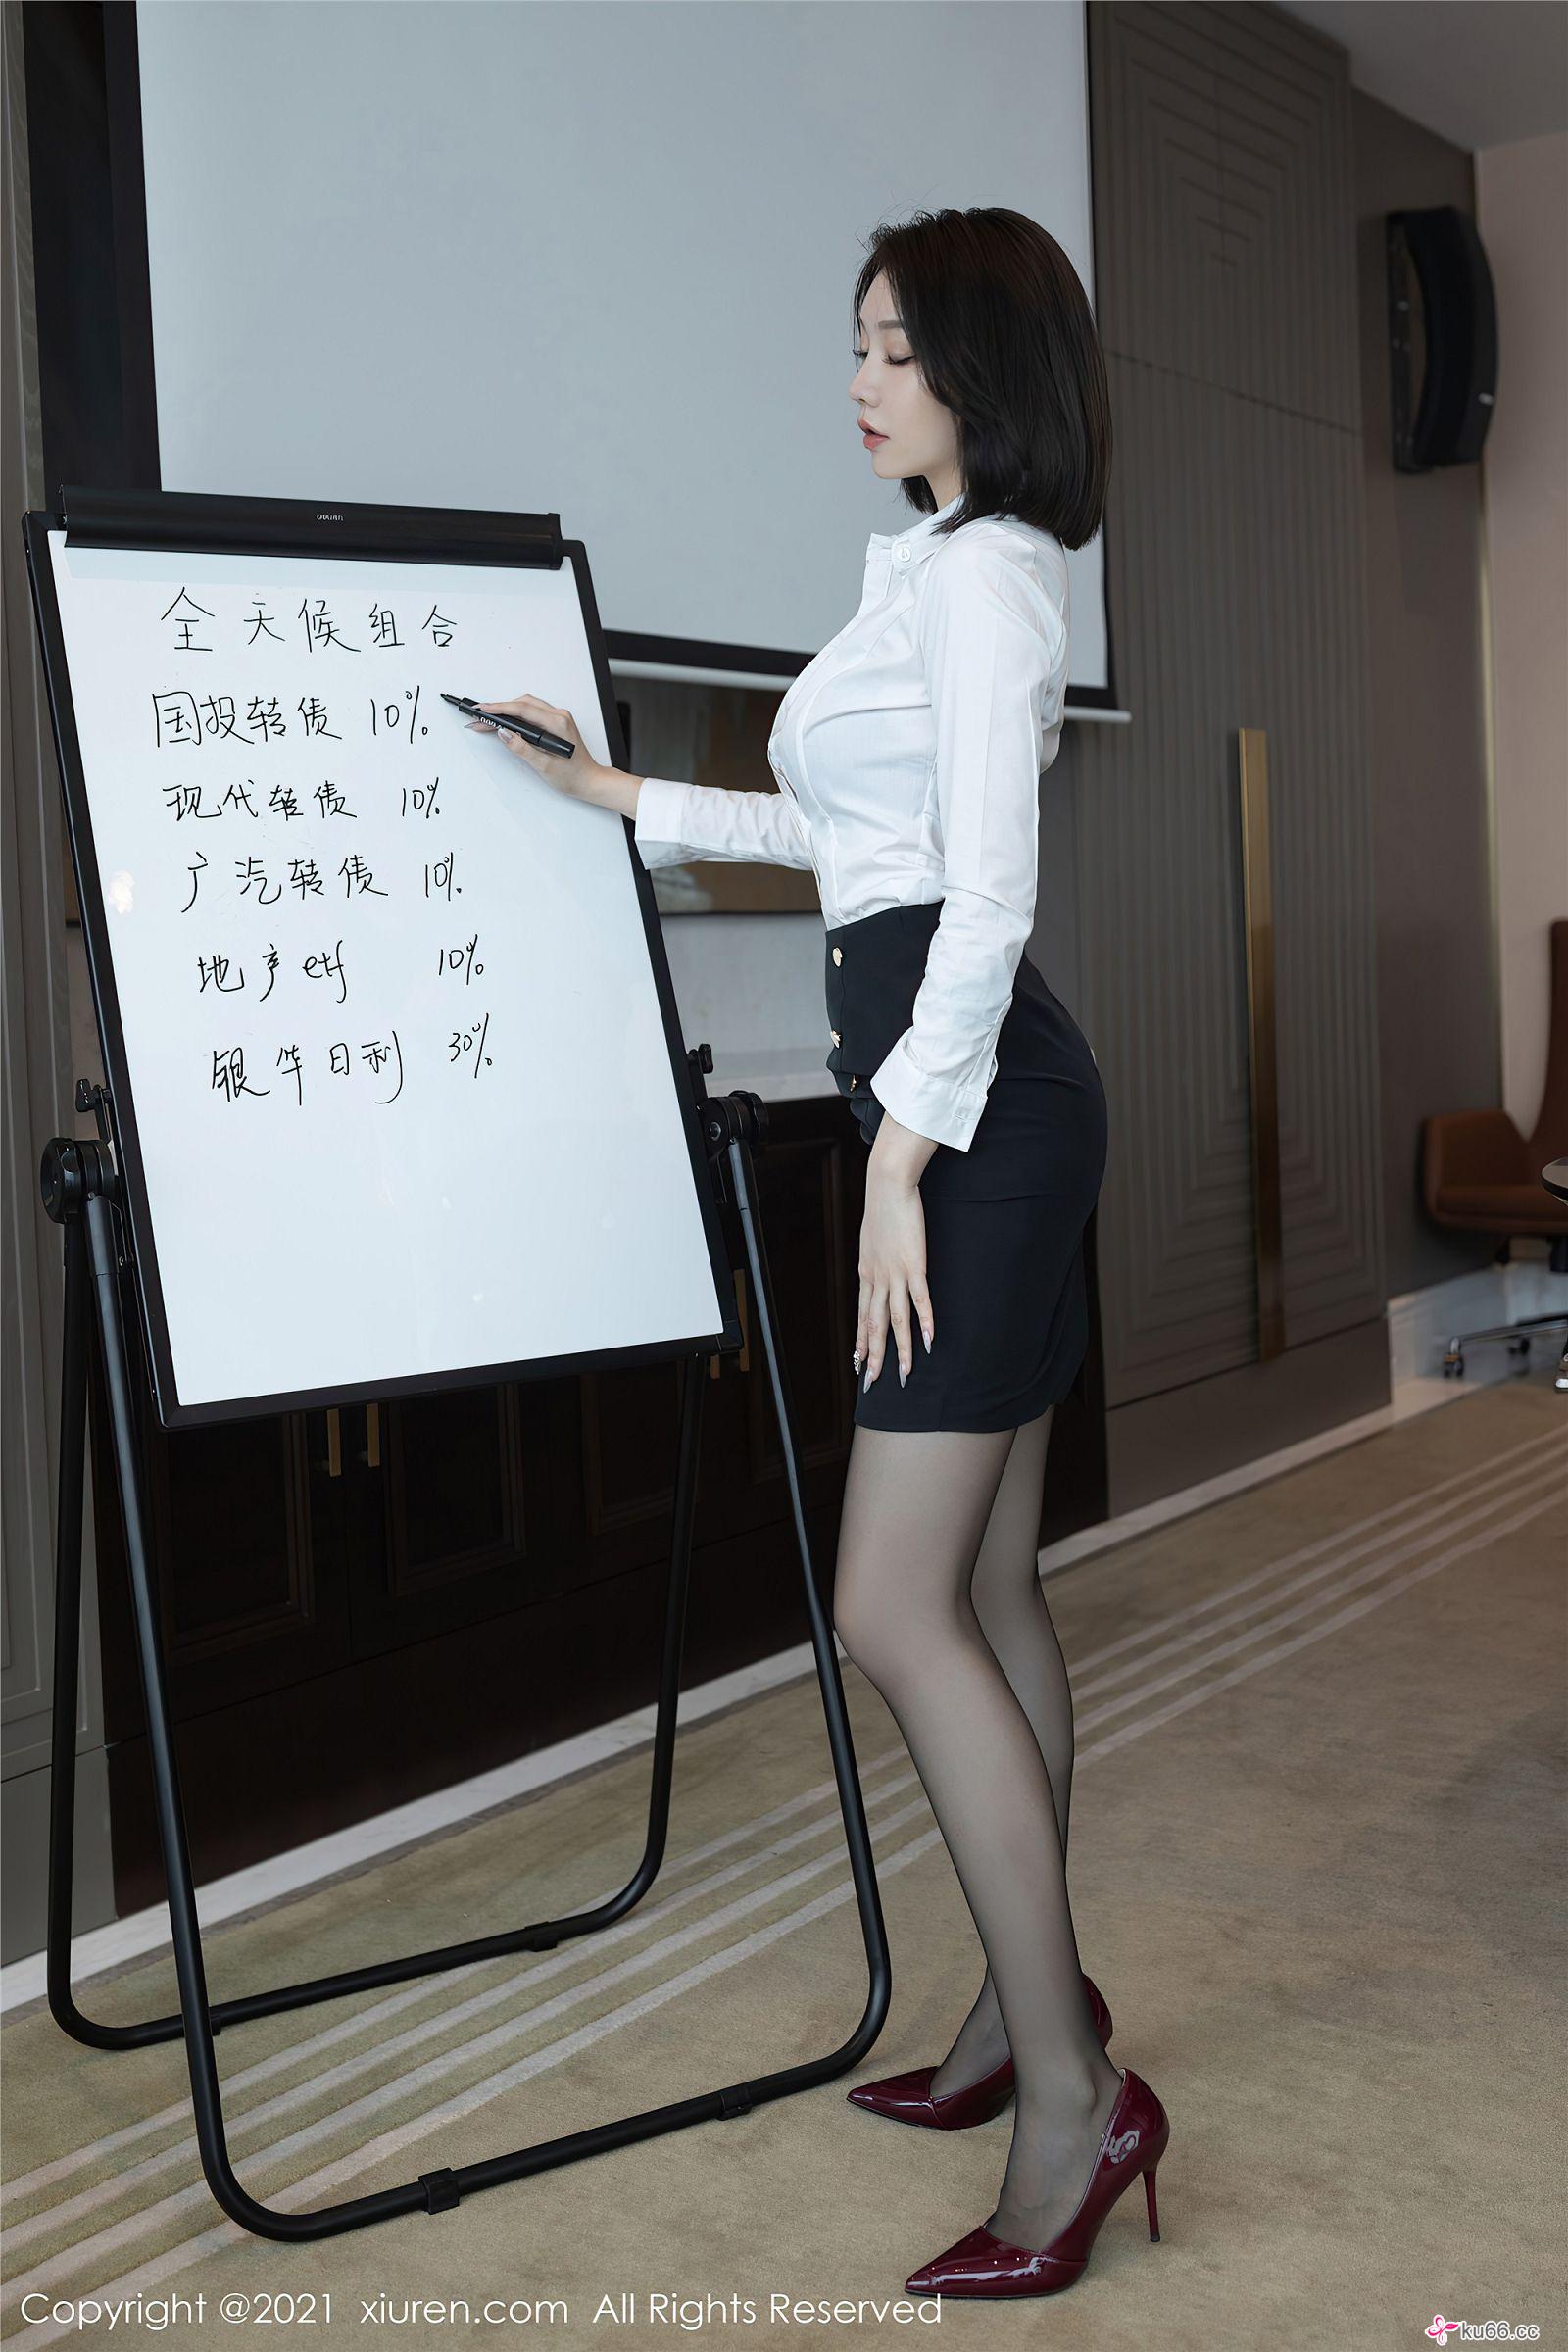 全天候组合
国投转债 10%
现代转债 10%
广汽转债 10%
地产etf 10%
银华日利 30%
Copyright @2021 xiuren.com All Rights Reserved
ku66.cc